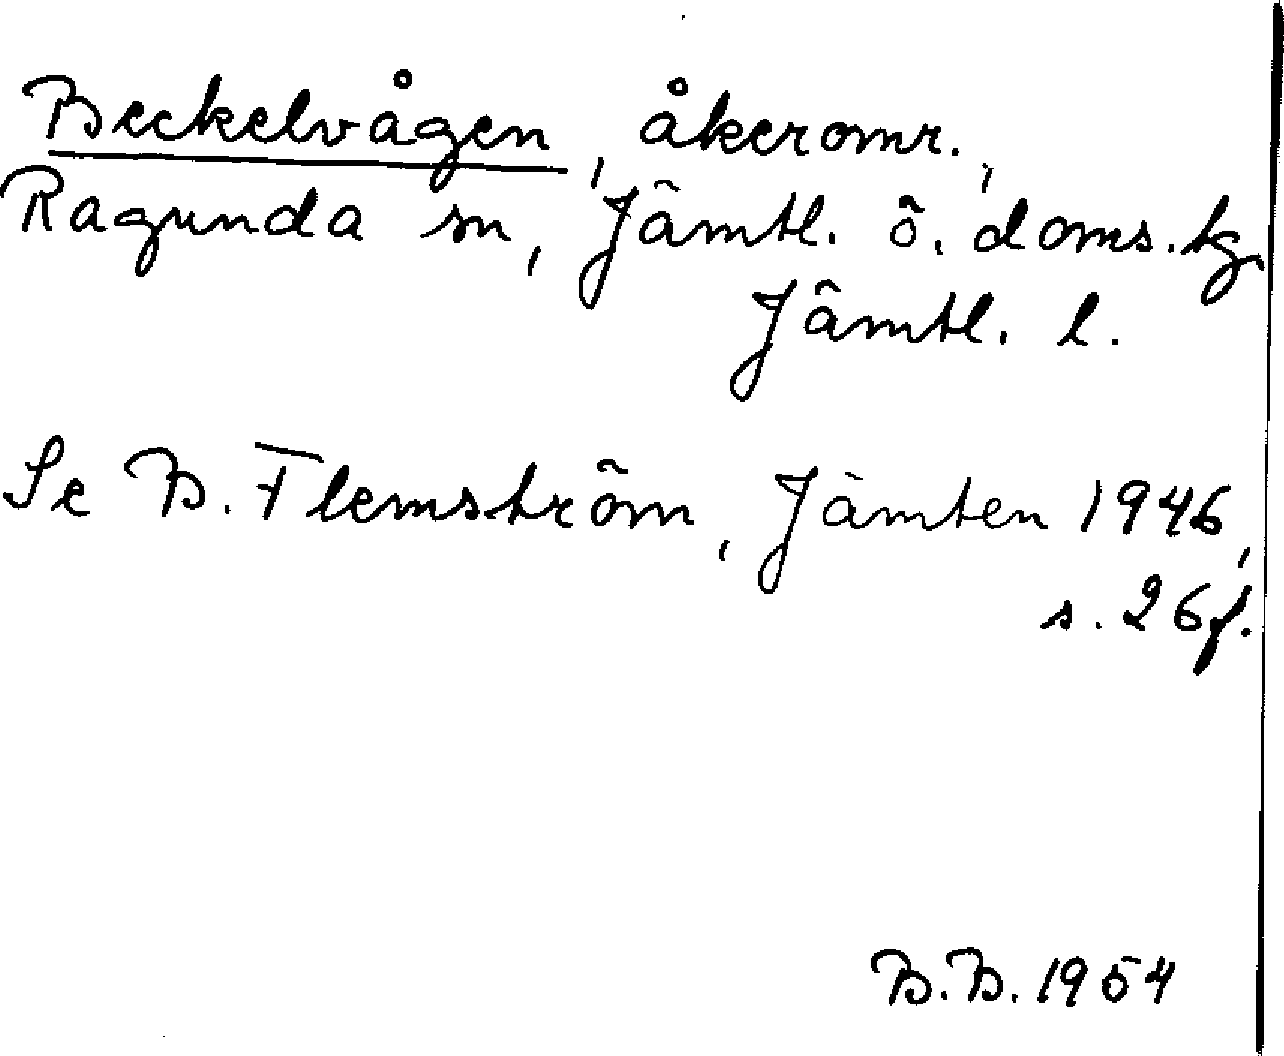 Beckelvågen, åkeromr.,
Ragunda sn, Jämtl. ö. doms.tg.
Jämtl. l.
Se B. Flemström, Jämten 1946,
s. 26f.
B.B. 1954